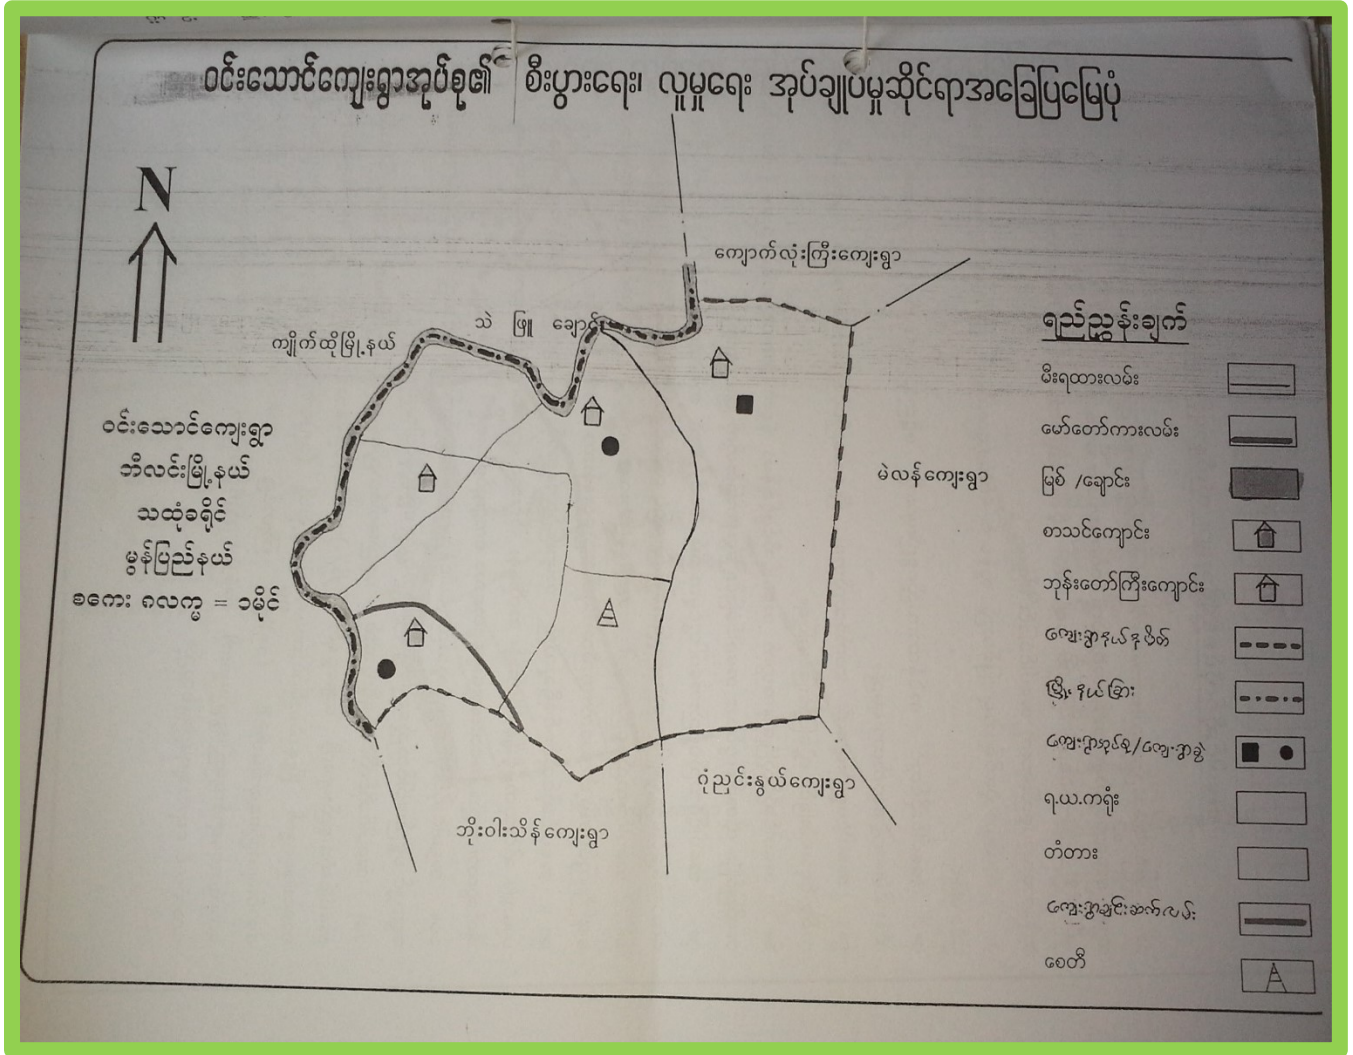 ဝင်းသောင်ကျေးရွာအုပ်စု၏ စီးပွားရေး၊ လူမှုရေး အုပ်ချုပ်မှုဆိုင်ရာအခြေပြမြေပုံ
N
ကျောက်လုံးကြီးကျေးရွာ
သဲ ဖြူ ချောင်း
ကျိုက်ထိုမြို့နယ်
ဝင်းသောင်ကျေးရွာ
ဘီလင်းမြို့နယ်
သထုံခရိုင်
မွန်ပြည်နယ်
စကေး ၈လက္မ = ၁မိုင်
မဲလန်ကျေးရွာ
ဂုံညင်းနွယ်ကျေးရွာ
ဘိုးဝါးသိန်ကျေးရွာ
ရည်ညွှန်းချက်
မီးရထားလမ်း
မော်တော်ကားလမ်း
မြစ် /ချောင်း
စာသင်ကျောင်း
ဘုန်းတော်ကြီးကျောင်း
ကျေးရွာနယ်နိမိတ်
မြို့နယ်ခြား
ကျေးရွာအုပ်စု/ကျေးရွာခွဲ
ရ.ယ.ကရုံး
တံတား
ကျေးရွာချင်းဆက်လမ်း
စေတီ